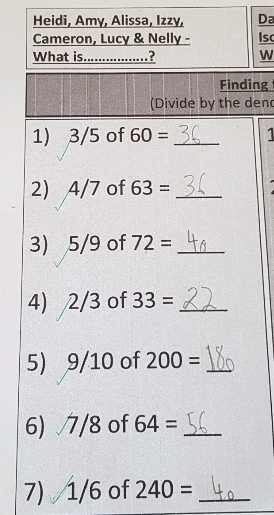 Heidi, Amy, Alissa, Izzy,
Cameron, Lucy & Nelly -
What is..................?
Da
Iso
W
Finding
(Divide by the deno
1) 3/5 of 60 = 36
2) 4/7 of 63 = 36
3) 5/9 of 72 = 40
4) 2/3 of 33 = 22
5) 9/10 of 200 = 180
6) 7/8 of 64 = 56
7) 1/6 of 240 = 40
1